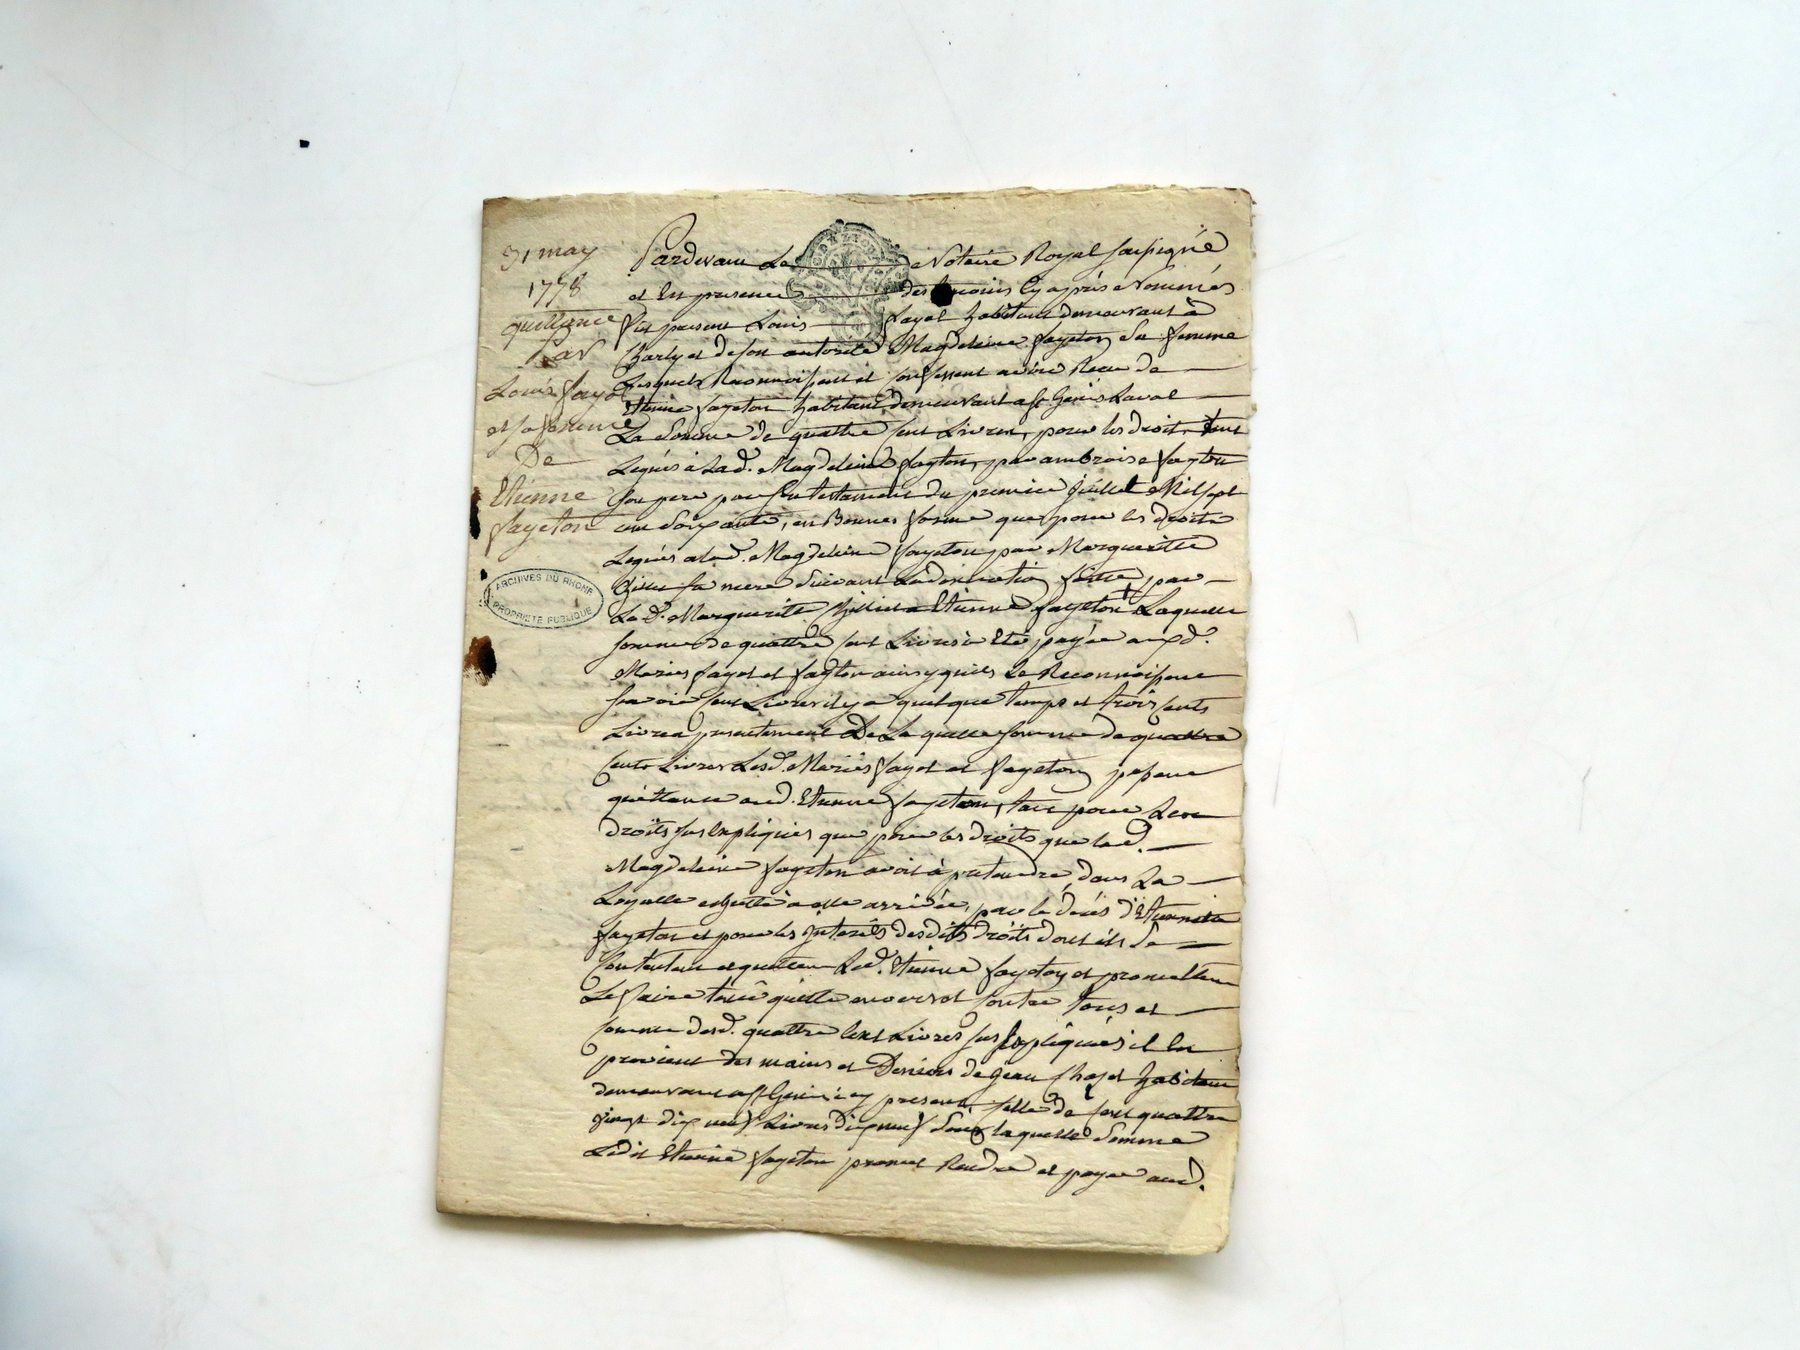 31 may
1778
quittance
Par
Louis fayol
et sa femme
De
Etienne
fayeton
ARCHIVES DU RHONE
PROPRIETE PUBLIQUE
Pardevant Le Notaire Royal soussigné
et En presence des temoins Cy après Nommés
fut present Louis fayol habitant demeurant à
Charly et de son autorité Magdeleine fayeton Sa femme
Lesquels Reconnoissent et confessent avoir Recu de
Etienne fayeton habitant demeurant a St Genis Laval
La Somme de quattre cent Livres, pour les droits
Legués à Lad. Magdeleine fayeton, par ambroise fayeton
son pere par son testament du premier Juillet Mil sept
cent soixante, en Bonnes forme que pour les droits
Legués a lad. Magdeleine fayeton par Margueritte
sa mere Suivant La donnation faitte par
La d. Marguerite a Etienne fayeton Laquelle
somme de quattre cent Livres a Eté payée auxd.
Mariés fayol et fayeton ainsy quils Le Reconnoissent
savoir cent Livres il y a quelque temps et trois cents
Livres presentement De La quelle somme de quattre
cents Livres Lesd. Mariés fayol et fayeton passent
quittance aud. Etienne fayeton, tant pour Les
droits sus Expliqués que pour les droits que lad.
Magdeleine fayeton avoit à pretendre, dans La
echutte à elle arrivée, par le décés d'Etiennette
fayeton et pour les Interêts desdits droits dont ils Se
Contentent et quittent Led. Etienne fayeton et promettent
Le faire tenir quitte envers et contre tous et
comme desd. quattre cent Livres sus Expliquées il En
provient des mains et Deniers de Jean habitant
demeurant a St Genis icy present, celle de cent quattre
vingt dix neuf Livres dix neuf Sous laquelle Somme
Ledit Etienne fayeton promet Rendre et payer aud.